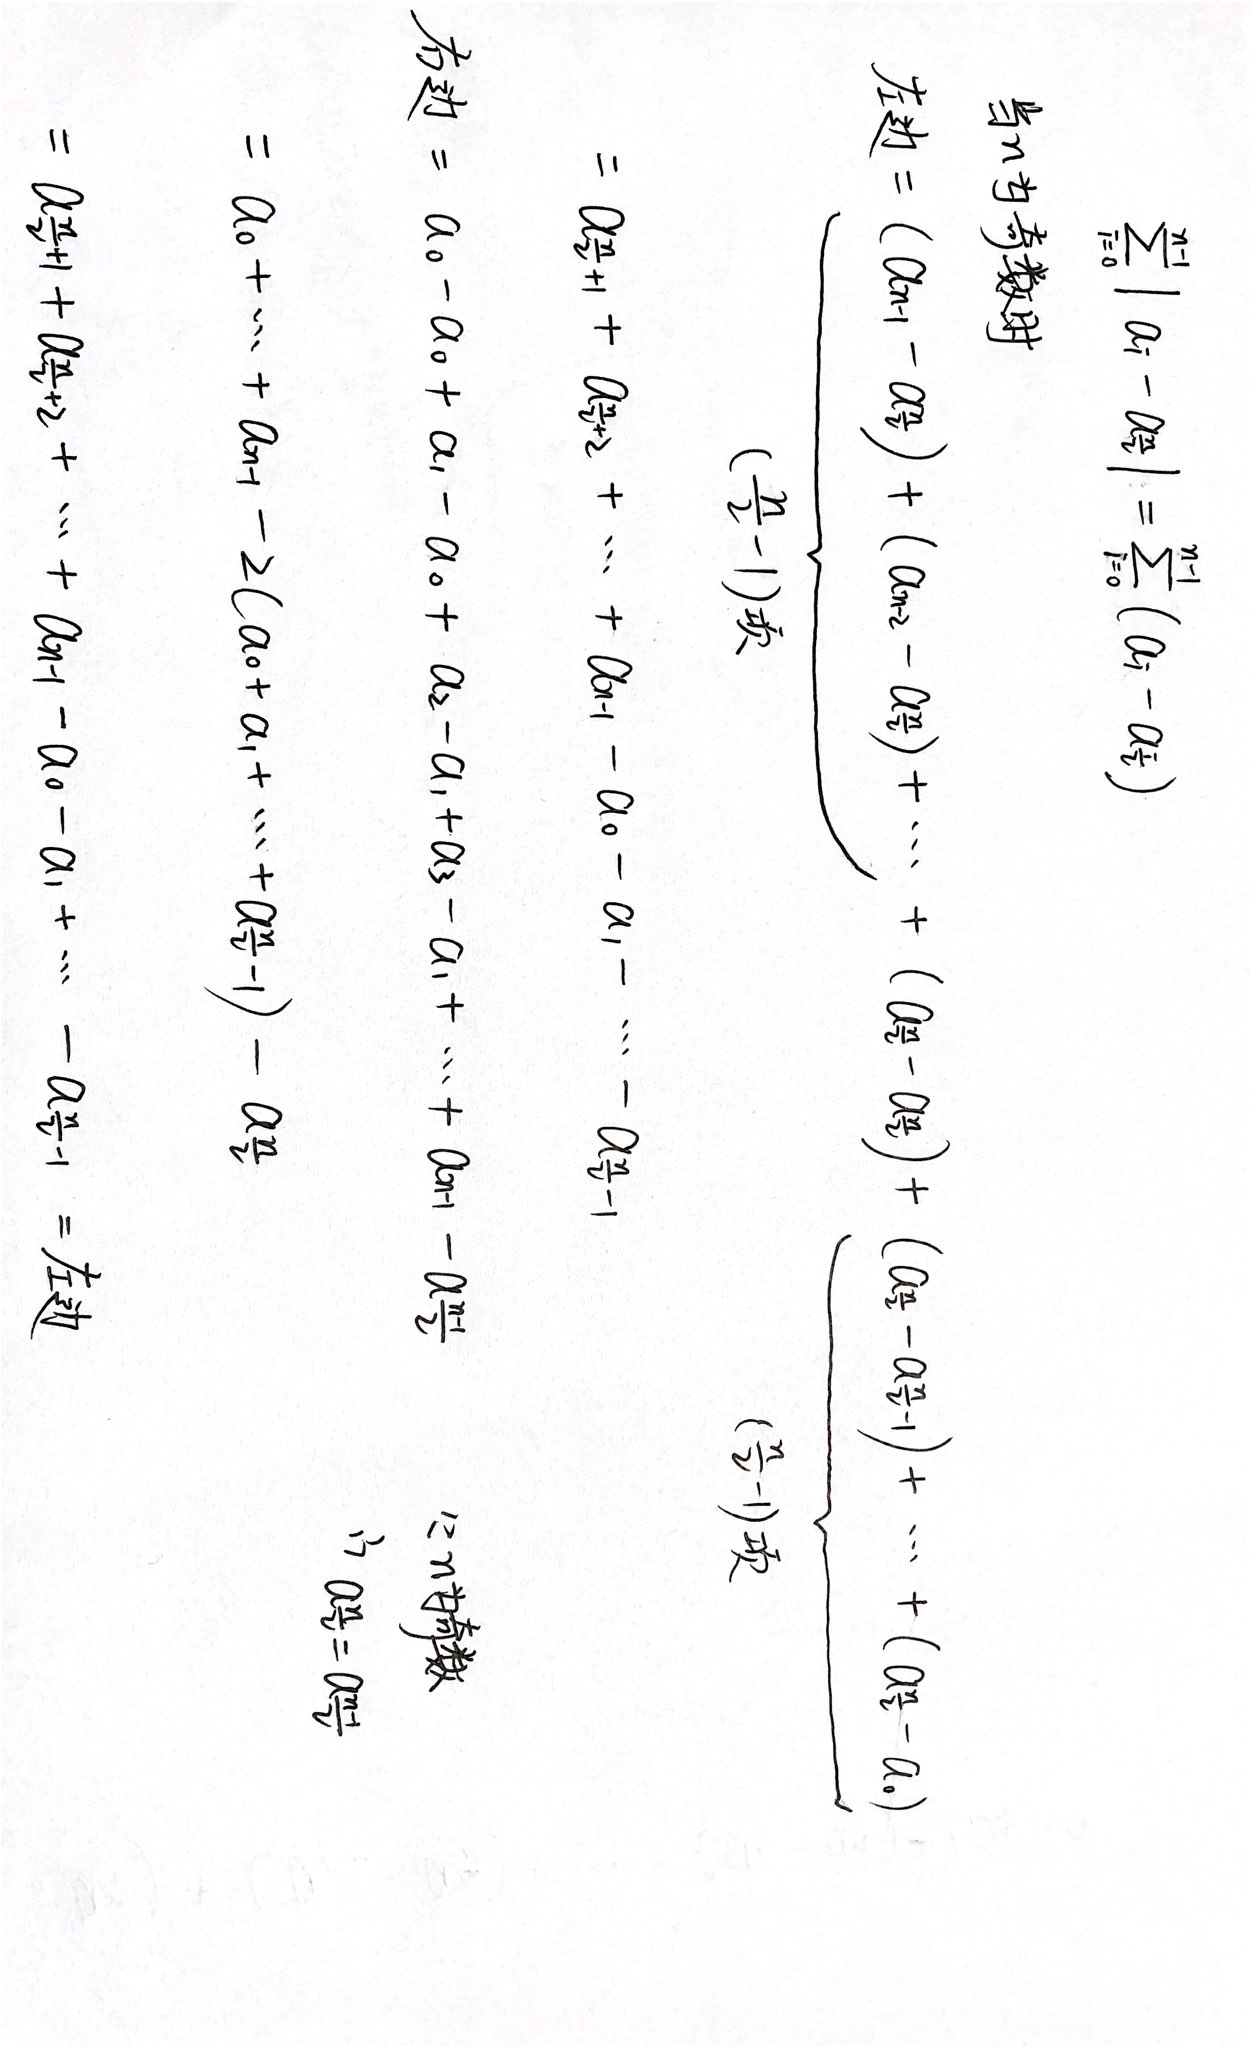 \sum_{i=0}^{n-1} | a_i - a_{\frac{n}{2}} | = \sum_{i=0}^{n-1} (a_i - a_{\frac{i}{2}})
当n为奇数时
左边 = (a_{n-1} - a_{\frac{n}{2}}) + (a_{n-2} - a_{\frac{n}{2}}) + ⋯ + (a_{\frac{n}{2}} - a_{\frac{n}{2}}) + (a_{\frac{n}{2}} - a_{\frac{n}{2}-1}) + ⋯ + (a_{\frac{n}{2}} - a_0)
(\frac{n}{2}-1)项 (\frac{n}{2}-1)项
= a_{\frac{n}{2}+1} + a_{\frac{n}{2}+2} + ⋯ + a_{n-1} - a_0 - a_1 - ⋯ - a_{\frac{n}{2}-1}
右边 = a_0 - a_0 + a_1 - a_0 + a_2 - a_1 + a_3 - a_1 + ⋯ + a_{n-1} - a_{\frac{n-1}{2}} ∵n为奇数
∴ a_{\frac{n}{2}} = a_{\frac{n-1}{2}}
= a_0 + ⋯ + a_{n-1} - 2(a_0 + a_1 + ⋯ + a_{\frac{n}{2}-1}) - a_{\frac{n}{2}}
= a_{\frac{n}{2}+1} + a_{\frac{n}{2}+2} + ⋯ + a_{n-1} - a_0 - a_1 + ⋯ - a_{\frac{n}{2}-1} = 左边